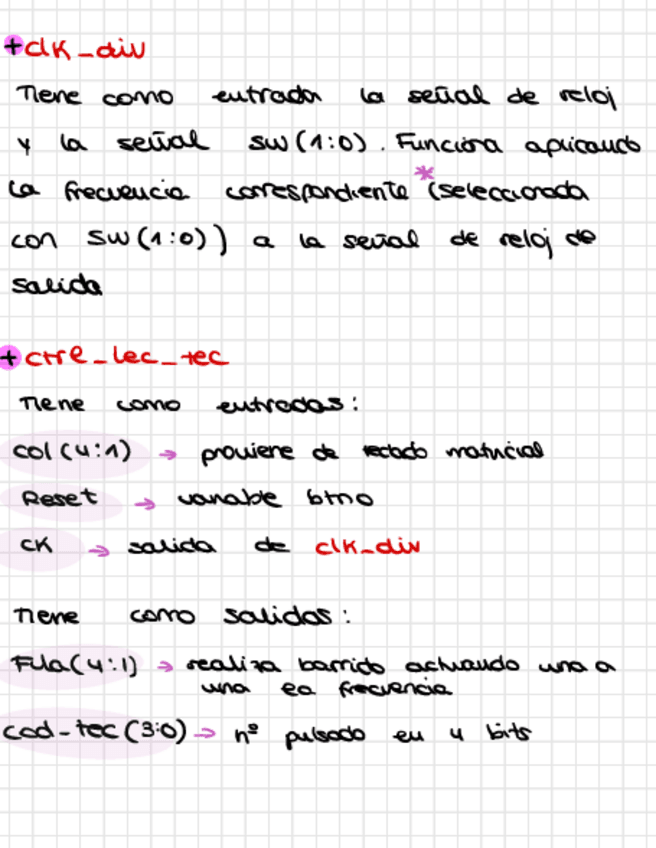 +clk_div
Tiene como entrada la señal de reloj
y la señal sw(1:0). Funciona aplicando
la frecuencia correspondiente * (seleccionada
con sw(1:0)) a la señal de reloj de
salida
+ctrl_lec_tec
Tiene como entradas:
col(4:1) → proviene de teclado matricial
Reset → variable btn0
ck → salida de clk_div
Tiene como salidas:
Fila(4:1) → realiza barrido activando una a
una la frecuencia
cod-tec(3:0) → nº pulsado en 4 bits